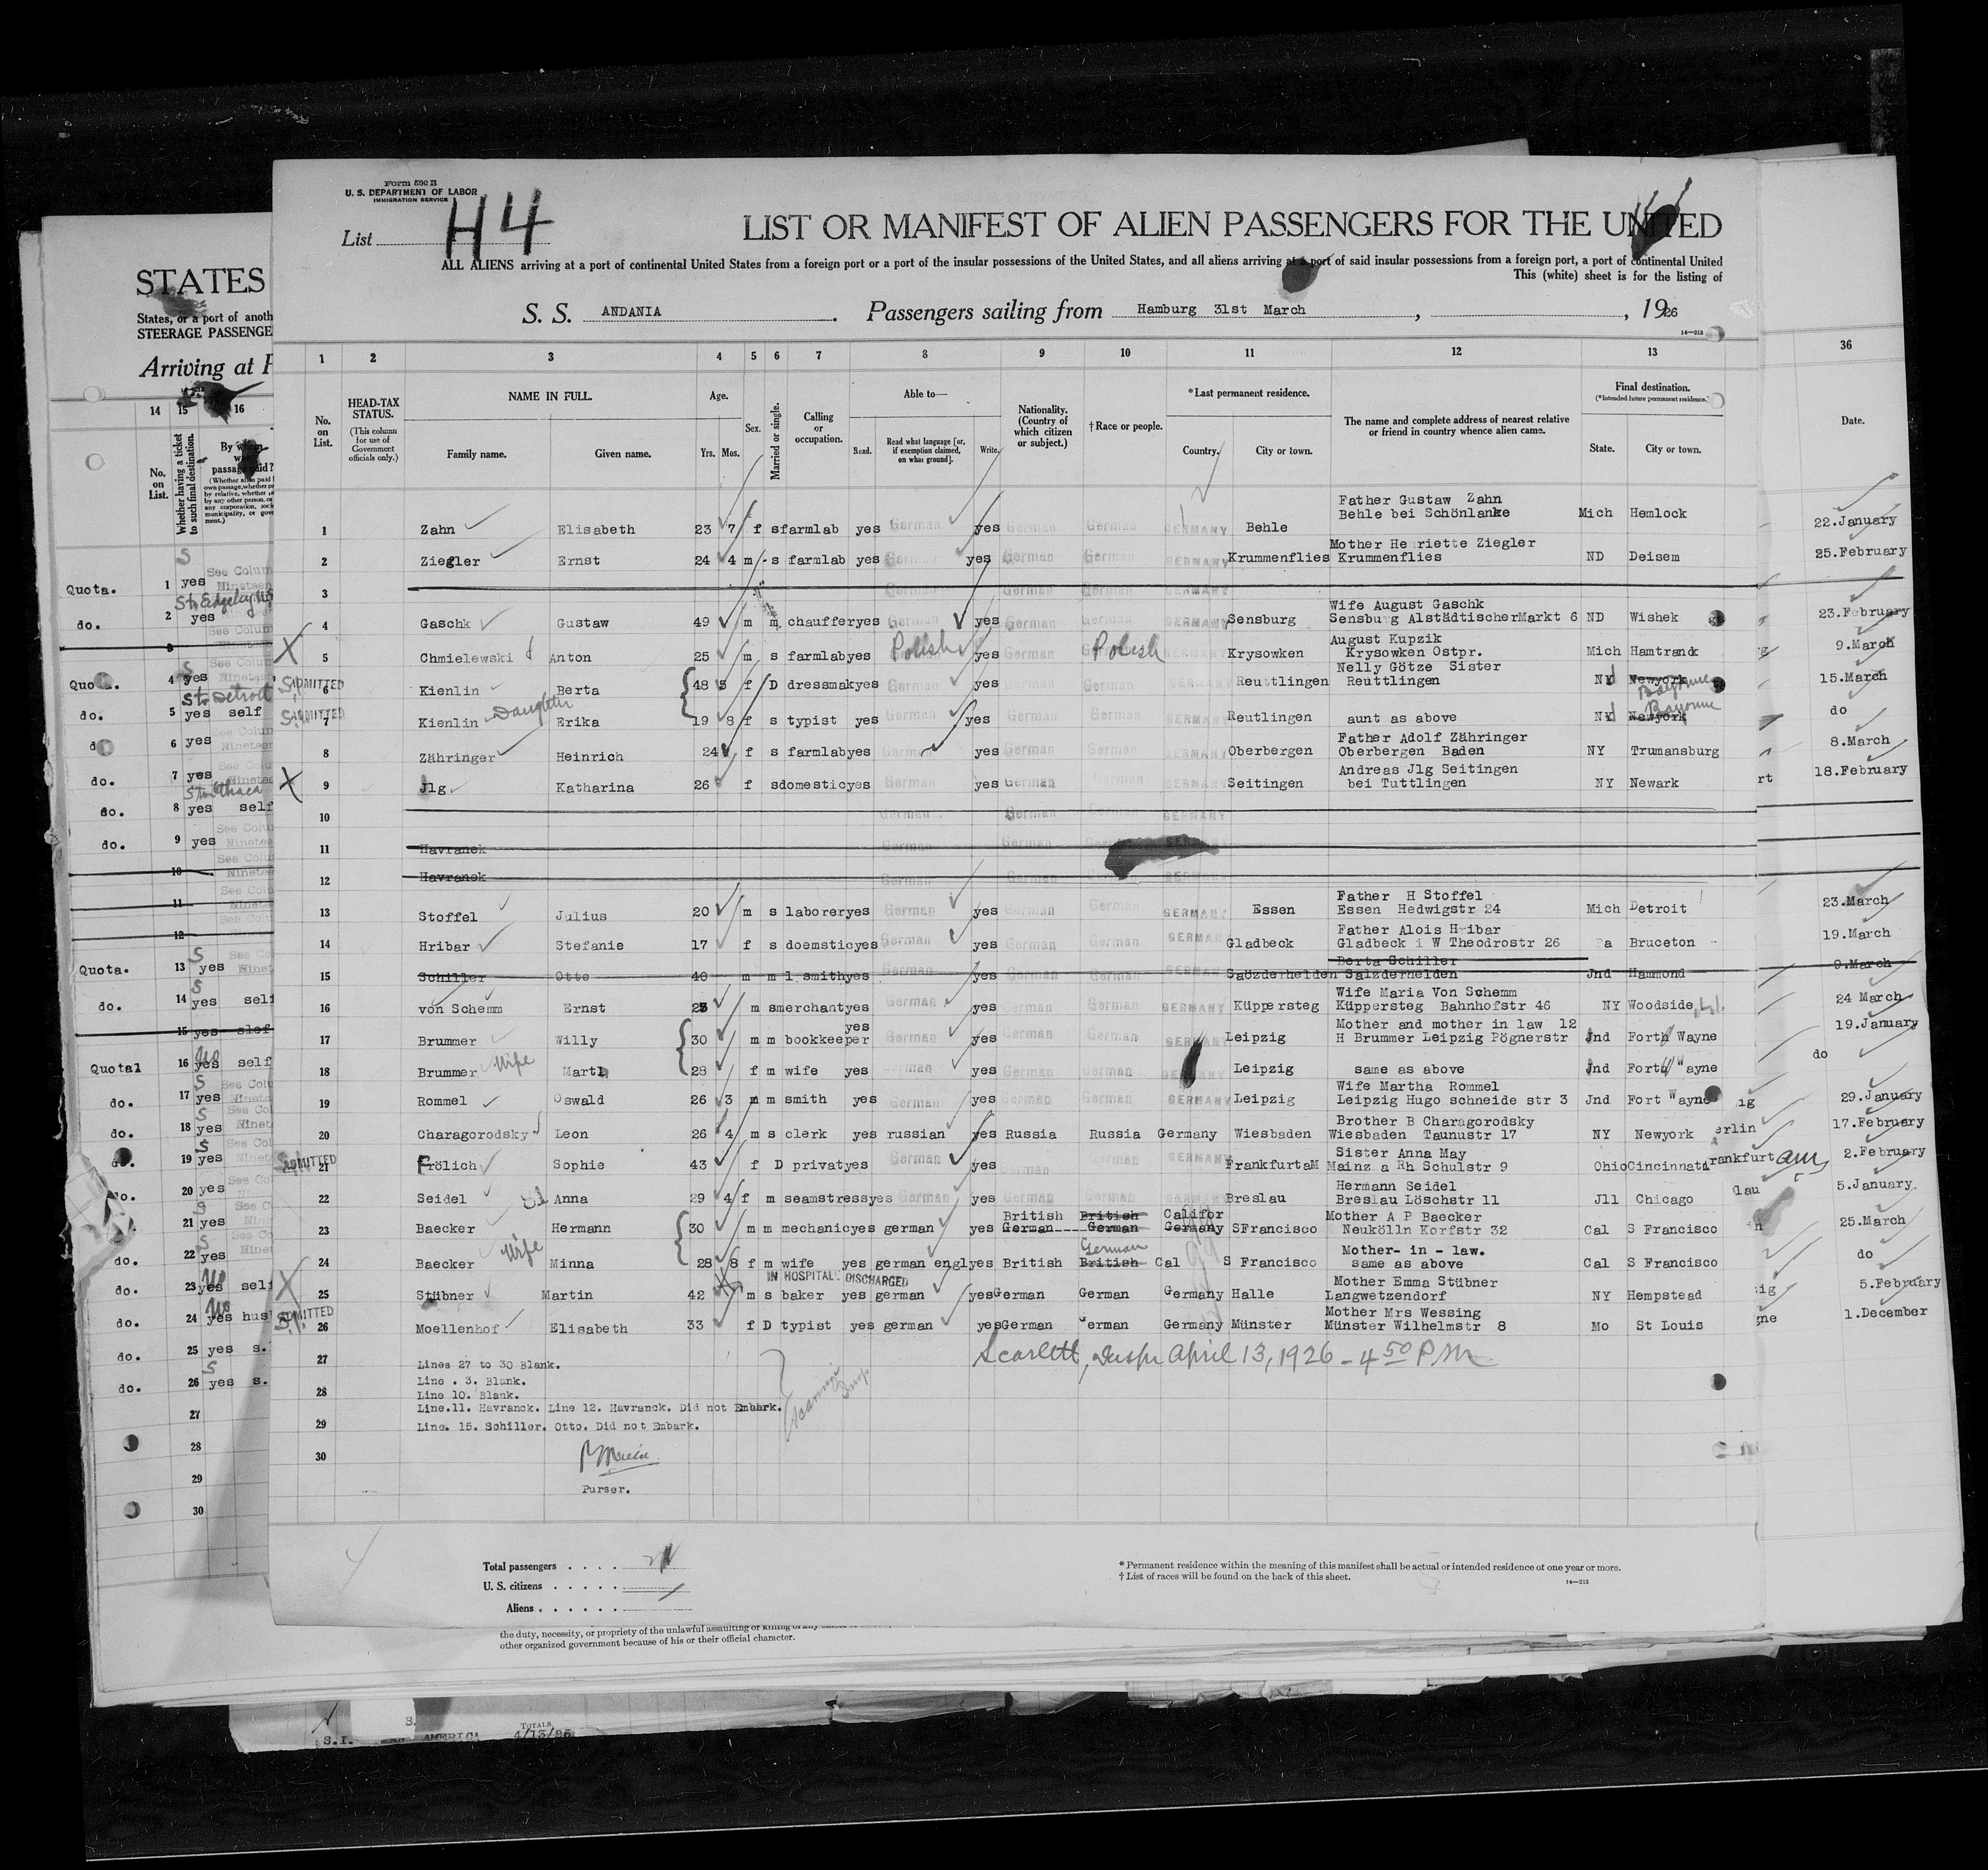 Form 590 B
U. S. DEPARTMENT OF LABOR
IMMIGRATION SERVICE
List H4
LIST OR MANIFEST OF ALIEN PASSENGERS FOR THE UNITED
ALL ALIENS arriving at a port of continental United States from a foreign port or a port of the insular possessions of the United States, and all aliens arriving at a port of said insular possessions from a foreign port, a port of continental United
This (white) sheet is for the listing of
S. S. ANDANIA. Passengers sailing from Hamburg 31st March, , 1926
14—213
1 2 3 4 5 6 7 8 9 10 11 12 13
No. on List.
HEAD-TAX STATUS.
(This column for use of Government officials only.)
NAME IN FULL.
Family name. Given name.
Age.
Yrs. Mos.
Sex.
Married or single.
Calling or occupation.
Able to—
Read. Read what language [or, if exemption claimed, on what ground]. Write.
Nationality. (Country of which citizen or subject.)
†Race or people.
*Last permanent residence.
Country. City or town.
The name and complete address of nearest relative or friend in country whence alien came.
Final destination.
(*Intended future permanent residence.)
State. City or town.
Father Gustaw Zahn
1 Zahn Elisabeth 23 7 f s farmlab yes German yes German German GERMANY Behle Behle bei Schönlanke Mich Hemlock
Mother Henriette Ziegler
2 Ziegler Ernst 24 4 m s farmlab yes German yes German German GERMANY Krummenflies Krummenflies ND Deisem
3 German German GERMANY
Wife August Gaschk
4 Gaschk Gustaw 49 m m chauffer yes German yes German German GERMANY Sensburg Sensburg AlstädtischerMarkt 6 ND Wishek
August Kupzik
5 Chmielewski Anton 25 m s farmlab yes Polish yes Polish GERMANY Krysowken Krysowken Ostpr. Mich Hamtranck
Nelly Götze Sister
ADMITTED 6 Kienlin Berta 48 5 f D dressmak yes German yes German German GERMANY Reuttlingen Reuttlingen NY Newyork Bayonne
ADMITTED 7 Kienlin Daughter Erika 19 8 f s typist yes German yes German German GERMANY Reutlingen aunt as above NY Newyork Bayonne
Father Adolf Zähringer
8 Zähringer Heinrich 24 f s farmlab yes German yes German German GERMANY Oberbergen Oberbergen Baden NY Trumansburg
Andreas Jlg Seitingen
9 Jlg Katharina 26 f s domestic yes German yes German German GERMANY Seitingen bei Tuttlingen NY Newark
10 German German GERMANY
11 Havranek German German German GERMANY
12 Havranek German German German GERMANY
Father H Stoffel
13 Stoffel Julius 20 m s laborer yes German yes German German GERMANY Essen Essen Hedwigstr 24 Mich Detroit
Father Alois Hribar
14 Hribar Stefanie 17 f s doemstic yes German yes German German GERMANY Gladbeck Gladbeck i W Theodrostr 26 Pa Bruceton
Berta Schiller
15 Schiller Otto 40 m m l smith yes German yes German German GERMANY Saözderhelden Salzderhelden Jnd Hammond
Wife Maria Von Schemm
16 von Schemm Ernst m s merchant yes German yes German German GERMANY Küppersteg Küppersteg Bahnhofstr 46 NY Woodside
Mother and mother in law 12
17 Brummer Willy 30 m m bookkeeper yes German yes German German GERMANY Leipzig H Brummer Leipzig Pögnerstr Jnd Forth Wayne
18 Brummer Wife Marth 28 f m wife yes German yes German German GERMANY Leipzig same as above Jnd Forth Wayne
Wife Martha Rommel
19 Rommel Oswald 26 3 m m smith yes German yes German German GERMANY Leipzig Leipzig Hugo schneide str 3 Jnd Fort Wayne
Brother B Charagorodsky
20 Charagorodsky Leon 26 4 m s clerk yes russian yes Russia Russia Germany Wiesbaden Wiesbaden Taunustr 17 NY Newyork
Sister Anna May
ADMITTED 21 Frölich Sophie 43 f D privat yes German yes German German GERMANY FrankfurtaM Mainz a Rh Schulstr 9 Ohio Cincinnati
Hermann Seidel
22 Seidel Anna 29 4 f m seamstress yes German yes German German GERMANY Breslau Breslau Löschstr 11 Jll Chicago
British British Califor Mother A P Baecker
23 Baecker Hermann 30 m m mechanic yes german yes German German Germany SFrancisco Neukölln Korfstr 32 Cal S Francisco
German Mother- in - law.
24 Baecker Wife Minna 28 8 f m wife yes german engl yes British British Cal S Francisco same as above Cal S Francisco
IN HOSPITAL DISCHARGED
Mother Emma Stübner
25 Stübner Martin 42 m s baker yes german yes German German Germany Halle Langwetzendorf NY Hempstead
Mother Mrs Wessing
ADMITTED 26 Moellenhof Elisabeth 33 f D typist yes german yes German German Germany Münster Münster Wilhelmstr 8 Mo St Louis
27 Lines 27 to 30 Blank.
Scarlett, Inspr April 13, 1926 - 4 50 PM
Line . 3. Blank.
28 Line 10. Blank.
Line.11. Havranck. Line 12. Havranck. Did not Embark.
29 Line. 15. Schiller. Otto. Did not Embark.
30
Purser.
Total passengers
U. S. citizens
Aliens
* Permanent residence within the meaning of this manifest shall be actual or intended residence of one year or more.
† List of races will be found on the back of this sheet.
14—213
the duty, necessity, or propriety of the unlawful assaulting or killing of any
other organized government because of his or their official character.
TOTALS
S.I. AMERICA 4/13/26
STATES
States, or a port of anoth
STEERAGE PASSENGE
Arriving at P
14 15 16
No. on List.
Whether having a ticket to such final destination.
By whom was passage paid?
Quota. 1 yes See Colum Nineteen
do. 2 yes
3
Quota. 4 yes
St Detroit
do. 5 yes self
do. 6 yes
do. 7 yes
do. 8 yes self
do. 9 yes
10
11
12
Quota. 13 yes
do. 14 yes self
15 yes slef
Quotal 16 yes No self
do. 17 yes
do. 18 yes
do. 19 yes
do. 20 yes
do. 21 yes
do. 22 yes
do. 23 yes No self
do. 24 yes No hus
do. 25 yes s.
do. 26 yes s.
27
28
29
30
36
Date.
22.January
25.February
23.February
9.March
15.March
do
8.March
18.February
23.March
19.March
9.March
24 March
19.January
do
29.January
17.February
2.February
5.January
25.March
do
5.February
1.December